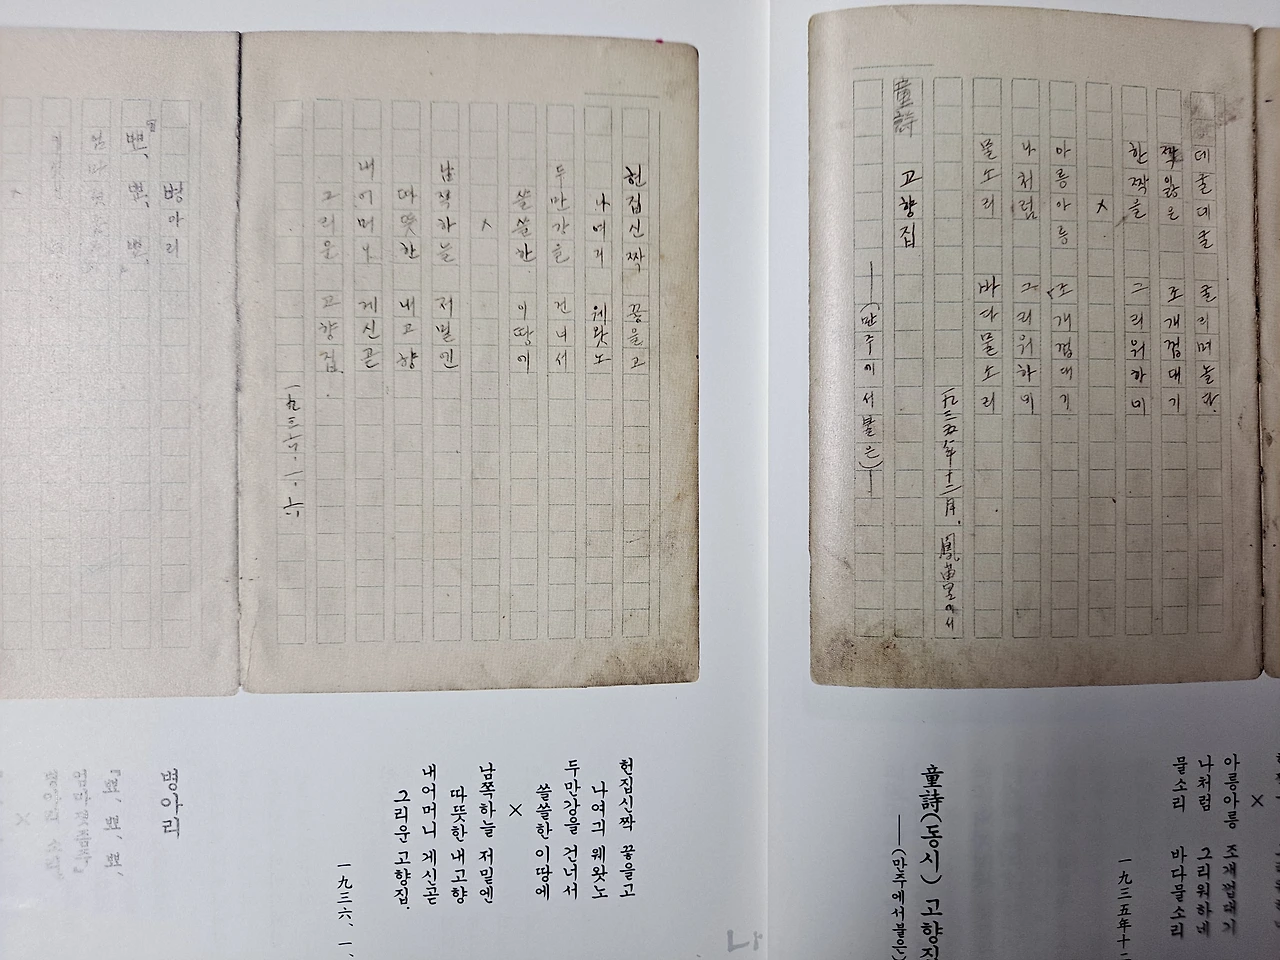 데굴데굴 굴리며놀다.
짝잃은 조개껍대기
한짝을 그리워하네
×
아릉아릉 조개껍대기
나처럼 그리워하네
물소리 바다물소리
一九三五年十二月、鳳峀里에서
童詩 고향집
──(만주에서불은)──
헌집신짝 끟을고
나여긔 웨왓노
두만강을 건너서
쓸쓸한 이땅에
×
남쪽하늘 저밑엔
따뜻한 내고향
내어머니 게신곧
그리운 고향집.
一九三六、一、六
병아리
『뾰、뾰、뾰、
×
아릉아릉 조개껍대기
나처럼 그리워하네
물소리 바다물소리
一九三五年十二
童詩(동시) 고향집
──(만주에서불은)
헌집신짝 끟을고
나여긔 웨왓노
두만강을 건너서
쓸쓸한 이땅에
×
남쪽하늘 저밑엔
따뜻한 내고향
내어머니 게신곧
그리운 고향집.
一九三六、一、
병아리
『뾰、뾰、뾰、
×
나